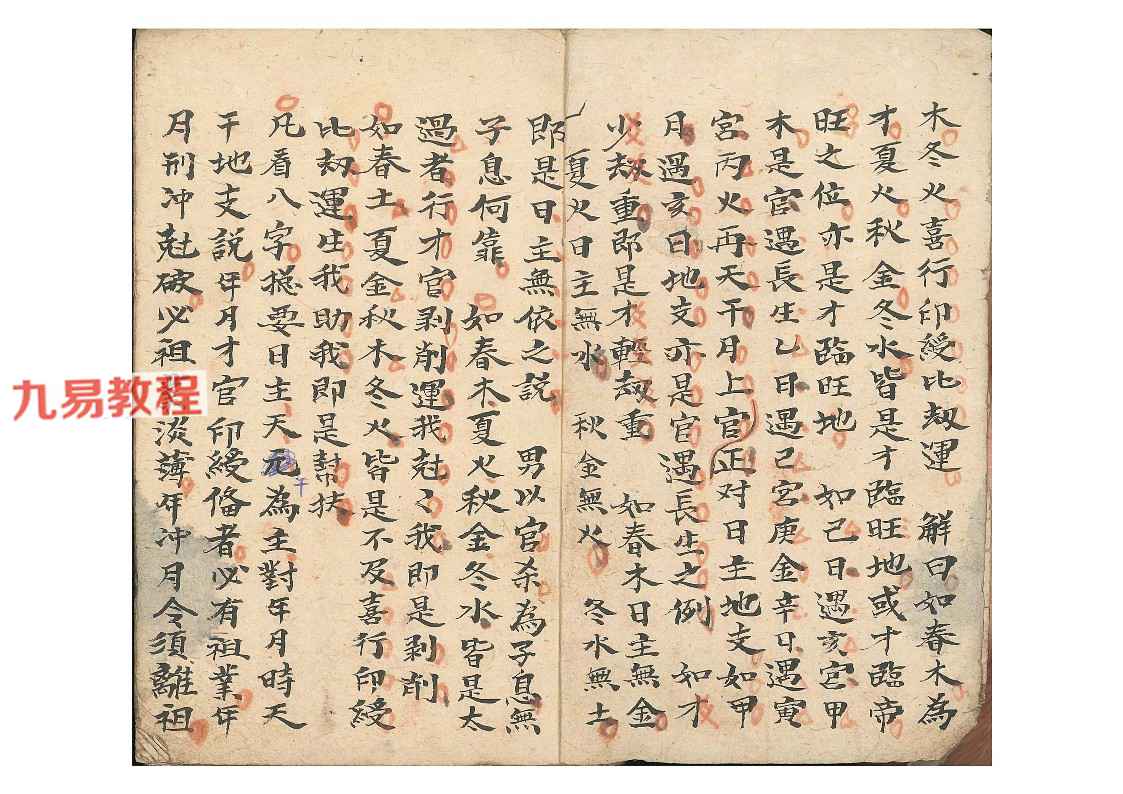 木冬火喜行印綬比刼運 解曰如春木為
才夏火秋金冬水皆是才臨旺地或才臨帝
旺之位亦是才臨旺地 如己日遇亥宫甲
木是官遇長生乚日遇己宮庚金辛日遇寅
宮丙火再天干月上官正对日主地支如甲
月遇亥日地支亦是官遇長生之例 如才
少刼重即是才輕刼重 如春木日主無金
夏火日主無水 秋金無火 冬水無土
即是日主無依之説 男以官杀為子息無
子息何靠 如春木夏火秋金冬水皆是太
過者行才官剥削運我尅〻我即是剥削
如春土夏金秋木冬火皆是不及喜行印綬
比刼運生我助我即是幫扶
凡看八字揔要日主天元為主對年月時天
干
干地支説年月才官印綬俻者必有祖業年
月刑冲尅破必祖淡薄年冲月令須離祖
九易教程